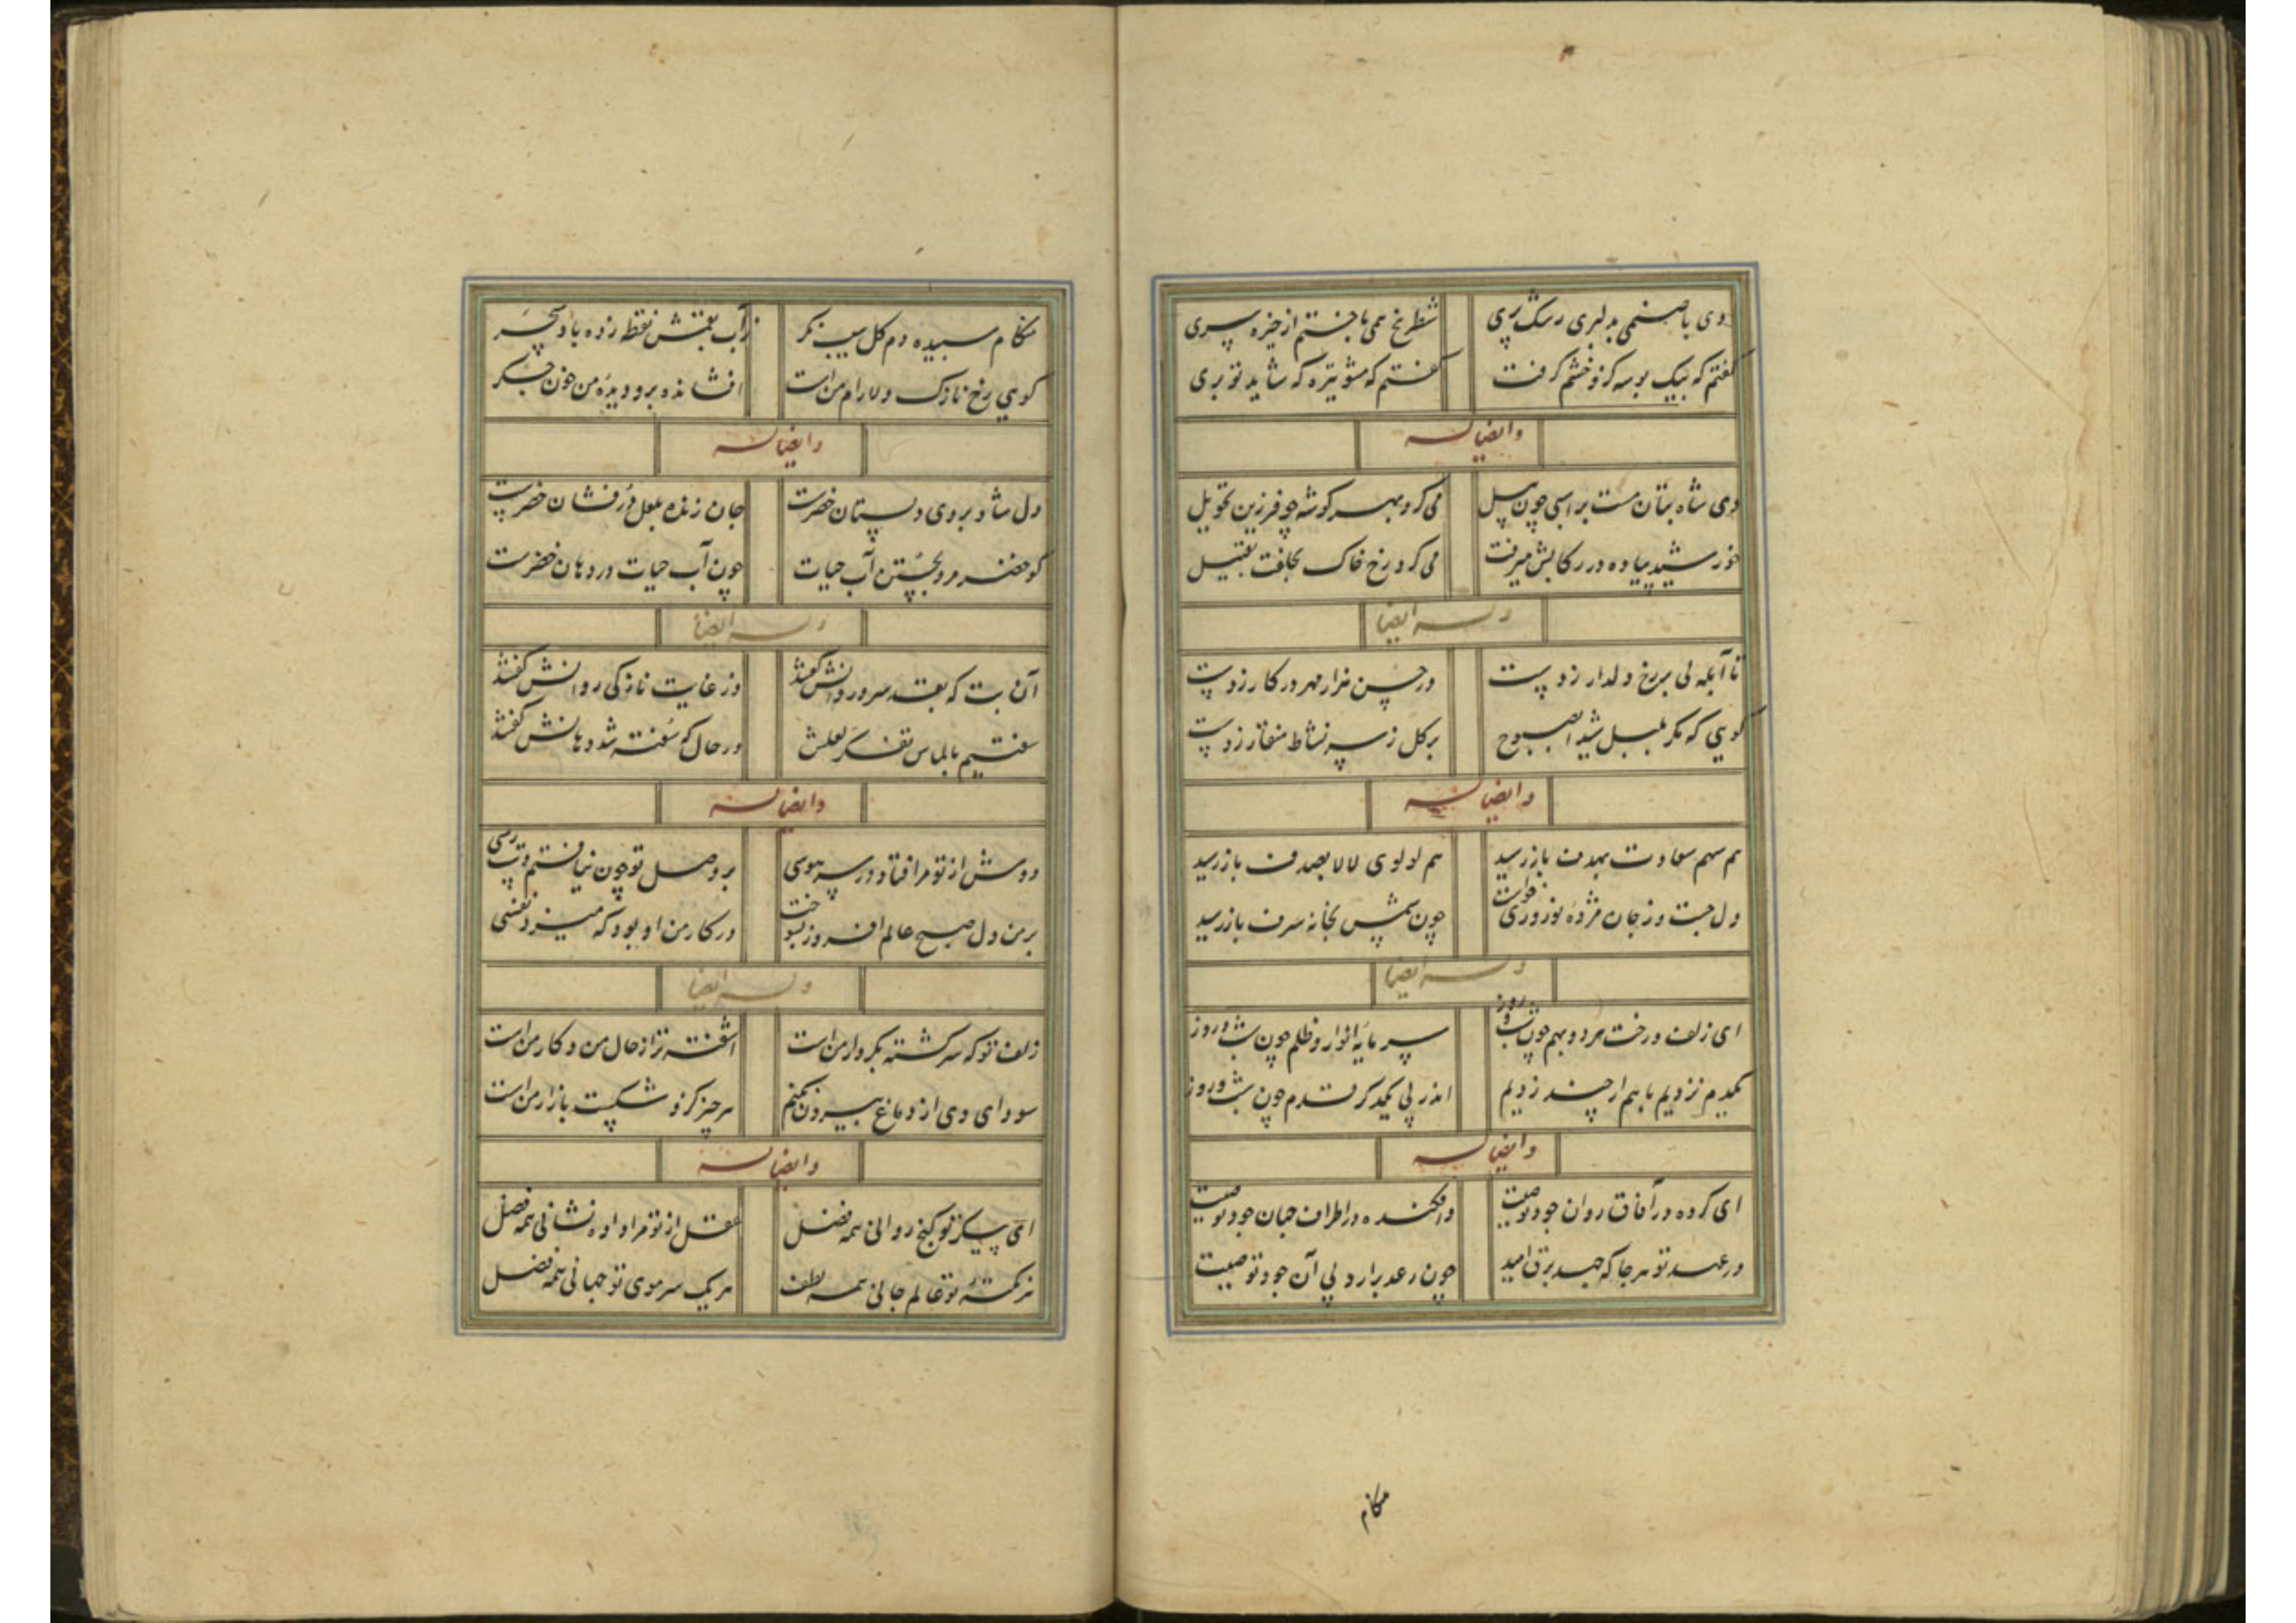 دی با صنمی بدلبری رشک پری شطرنج همی باختم از خیره سری
گفتم که بیک بوسه کرو خشم گرفت گفتم که مشو تیره که شاید تو بری
وایضا له
دی شاه بتان مست براسبی چون پیل می کرد بهر گوشه چو فرزین تحویل
خورشید پیاده در رکابش میرفت می کرد رخ خاک تقبیل
وله ایضا
تا آبله لی بر رخ دلدار زدست در حسن هزار مهر در کار زدست
گویی که مگر بلبل شیدا بصبوح بر گل ز سر نشاط منقار زدست
وایضا له
هم سهم سعادت بهدف باز رسید هم لولوی لالا بصدف باز رسید
دل جست وز جان مژده نوروزی خواست چون شمس بخانه شرف باز رسید
وله ایضا
ای زلف و رخت هر دو بهم چون شب و روز سرمایه انوار و ظلم چون شب و روز
یکدم نزدیم با هم ار چند زدیم اندر پی یکدگر قدم چون شب و روز
وایضا له
ای کرده در آفاق روان جود تو صیت وافکنده در اطراف جهان جود تو صیت
در عهد تو هر جا که جهد برق امید چون رعد برآرد پی آن جود تو صیت
هنگام
هنگام سپیده دم گل سیب نگر زآب بقمش نقطه زده باد سحر
گویی رخ نازک دلارام من است افشانده برو دیده من خون جگر
وایضا له
دل شاد بروی دلستان خضرست جان زنده بلعل درفشان خضرست
گو خضر مرو بجستن آب حیات چون آب حیات در دهان خضرست
وله ایضا
آن بت که بقد سرو روانش گفتند وز غایت نازکی روانش گفتند
سفتیم بالماس تفکر لعلش در حال که سفته شد دهانش گفتند
وایضا له
دوش از تو مرا فتاد در سر هوسی بر وصل تو چون نیافتم دست رسی
بر من دل صبح عالم افروز نسوخت در کار من او بود که میزد نفسی
وله ایضا
زلف تو که سر گشته بکردار من است آشفته تر از حال من و کار من است
سودای وی از دماغ بیرون نکنم هر چیز کزو شکست بازار من است
وایضا له
ای پیکر تو گنج روانی همه فضل عقل از تو مرا داده نشانی همه فضل
هر نکته تو عالم جانی همه لطف هر یک سر موی تو جهانی همه فضل